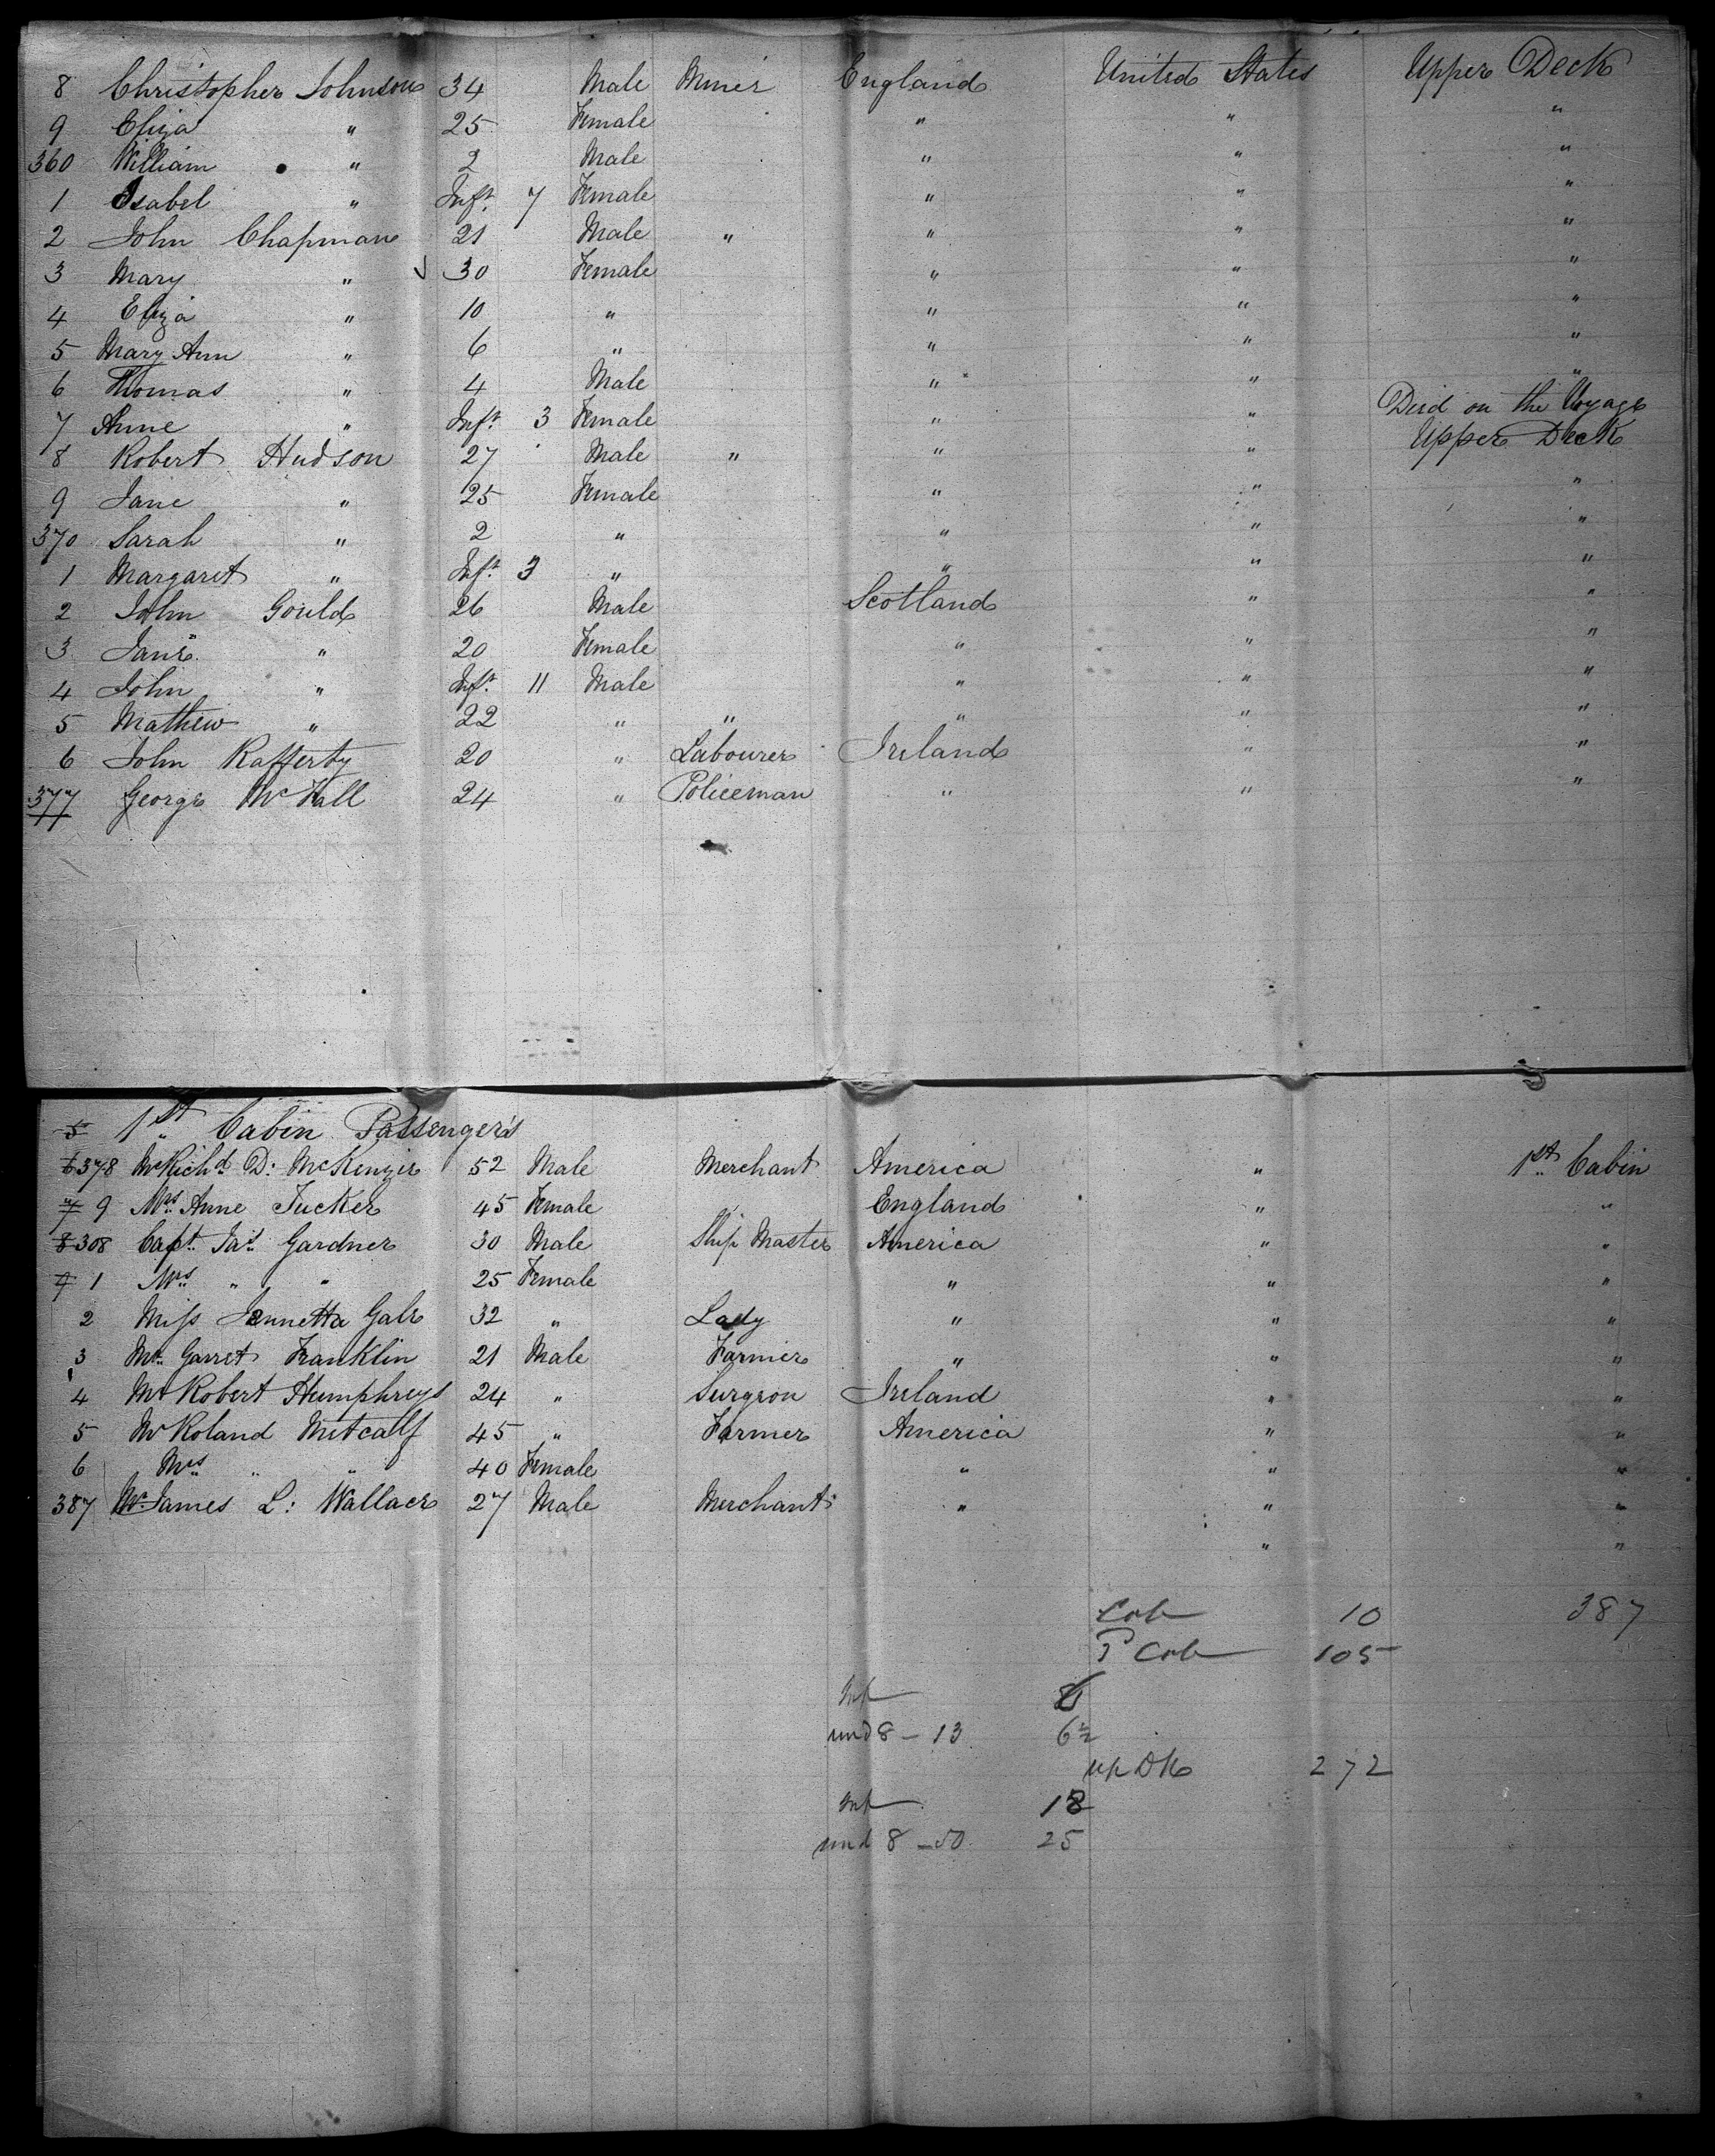 8 Christopher Johnson 34 Male Miner England United States Upper Deck
9 Eliza " 25 Female " " "
360 William " 2 Male " " "
1 Isabel " Inft. 7 Female " " "
2 John Chapman 21 Male " " " "
3 Mary " 30 Female " " "
4 Eliza " 10 " " " "
5 Mary Ann " 6 " " " "
6 Thomas " 4 Male " " "
7 Anne " Inft. 3 Female " " Died on the Voyage
8 Robert Hudson 27 Male " " " Upper Deck
9 Jane " 25 Female " " "
370 Sarah " 2 " " " "
1 Margaret " Inft. 3 " " " "
2 John Gould 26 Male Scotland " "
3 Jane " 20 Female " " "
4 John " Inft. 11 Male " " "
5 Mathew " 22 " " " " "
6 John Rafferty 20 " Labourer Ireland " "
377 George Mc 24 " Policeman " " "
5 1st Cabin Passengers
6 378 Mr Richd D: McKenzie 52 Male Merchant America " 1st Cabin
7 9 Mrs Anne Tucker 45 Female England " "
8 308 Capt. Jas. Gardner 30 Male Ship Master America " "
9 1 Mrs " " 25 Female " " "
2 Miss Jennetta Gale 32 " Lady " " "
3 Mr. Garret Franklin 21 Male Farmer " " "
4 Mr Robert Humphreys 24 " Surgeon Ireland " "
5 Mr Roland Metcalf 45 " Farmer America " "
6 Mrs " " 40 Female " " "
387 Mr. James L: Wallace 27 Male Merchant " " "
" "
Cab 10 387
Cab 105
Inf
und 8 - 13 6½
up Dk 272
Inf 18
und 8 - 50 25